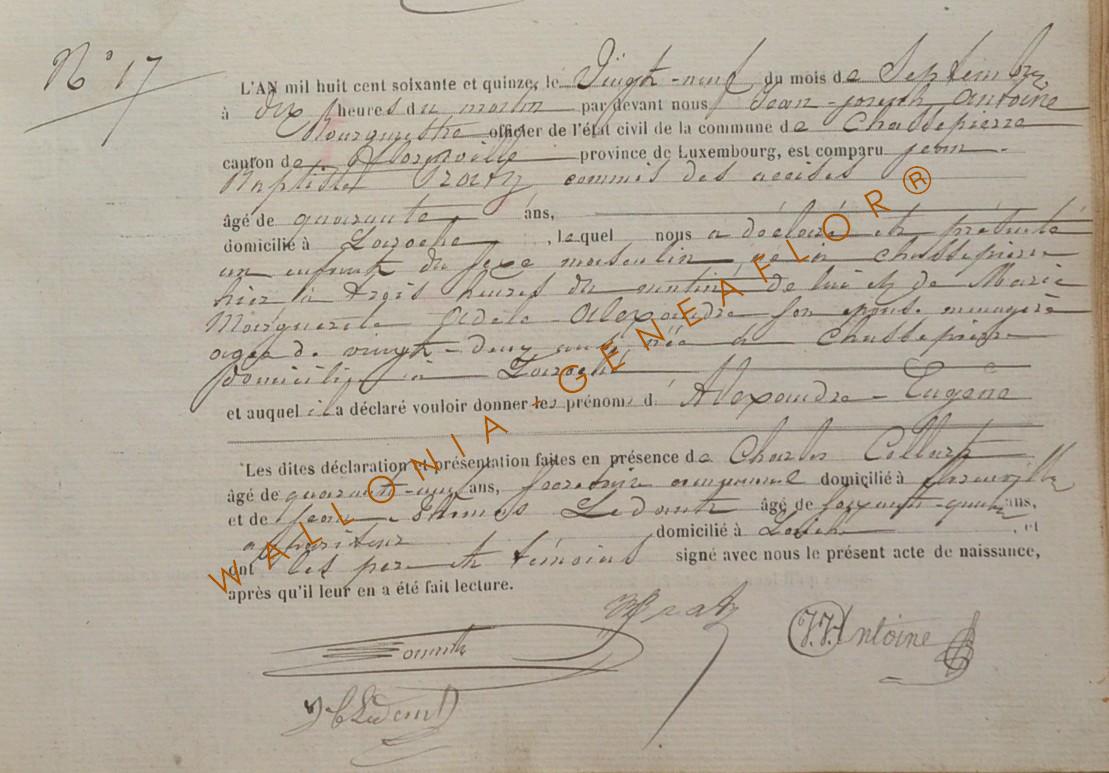 N° 17
L'AN mil huit cent soixante et quinze, le Vingt-neuf du mois de Septembre
à dix heures du matin par devant nous Jean-joseph Antoine
Bourguestre officier de l'état civil de la commune de Chassepierre
canton de Florenville province de Luxembourg, est comparu jean-
Baptiste commis des accises
âgé de quarante ans,
domicilié à Laroche, lequel nous a déclaré et présenté
un enfant du sexe masculin, né à Chassepierre
hier à trois heures du matin, de lui et de Marie
Marguerite Adele Alexandre son épouse menagère
agée de vingt-deux ans née à Chassepierre
domiciliée à Laroche
et auquel il a déclaré vouloir donner les prénoms d' Alexandre-Eugène
Les dites déclaration et présentation faites en présence de Charles
âgé de ans, secretaire communal domicilié à
et de jean- âgé de soixante-quatre ans,
domicilié à et
ont les pere et témoins signé avec nous le présent acte de naissance,
après qu'il leur en a été fait lecture.
J.J. Antoine
WALLONIA-GENEAFLOR®